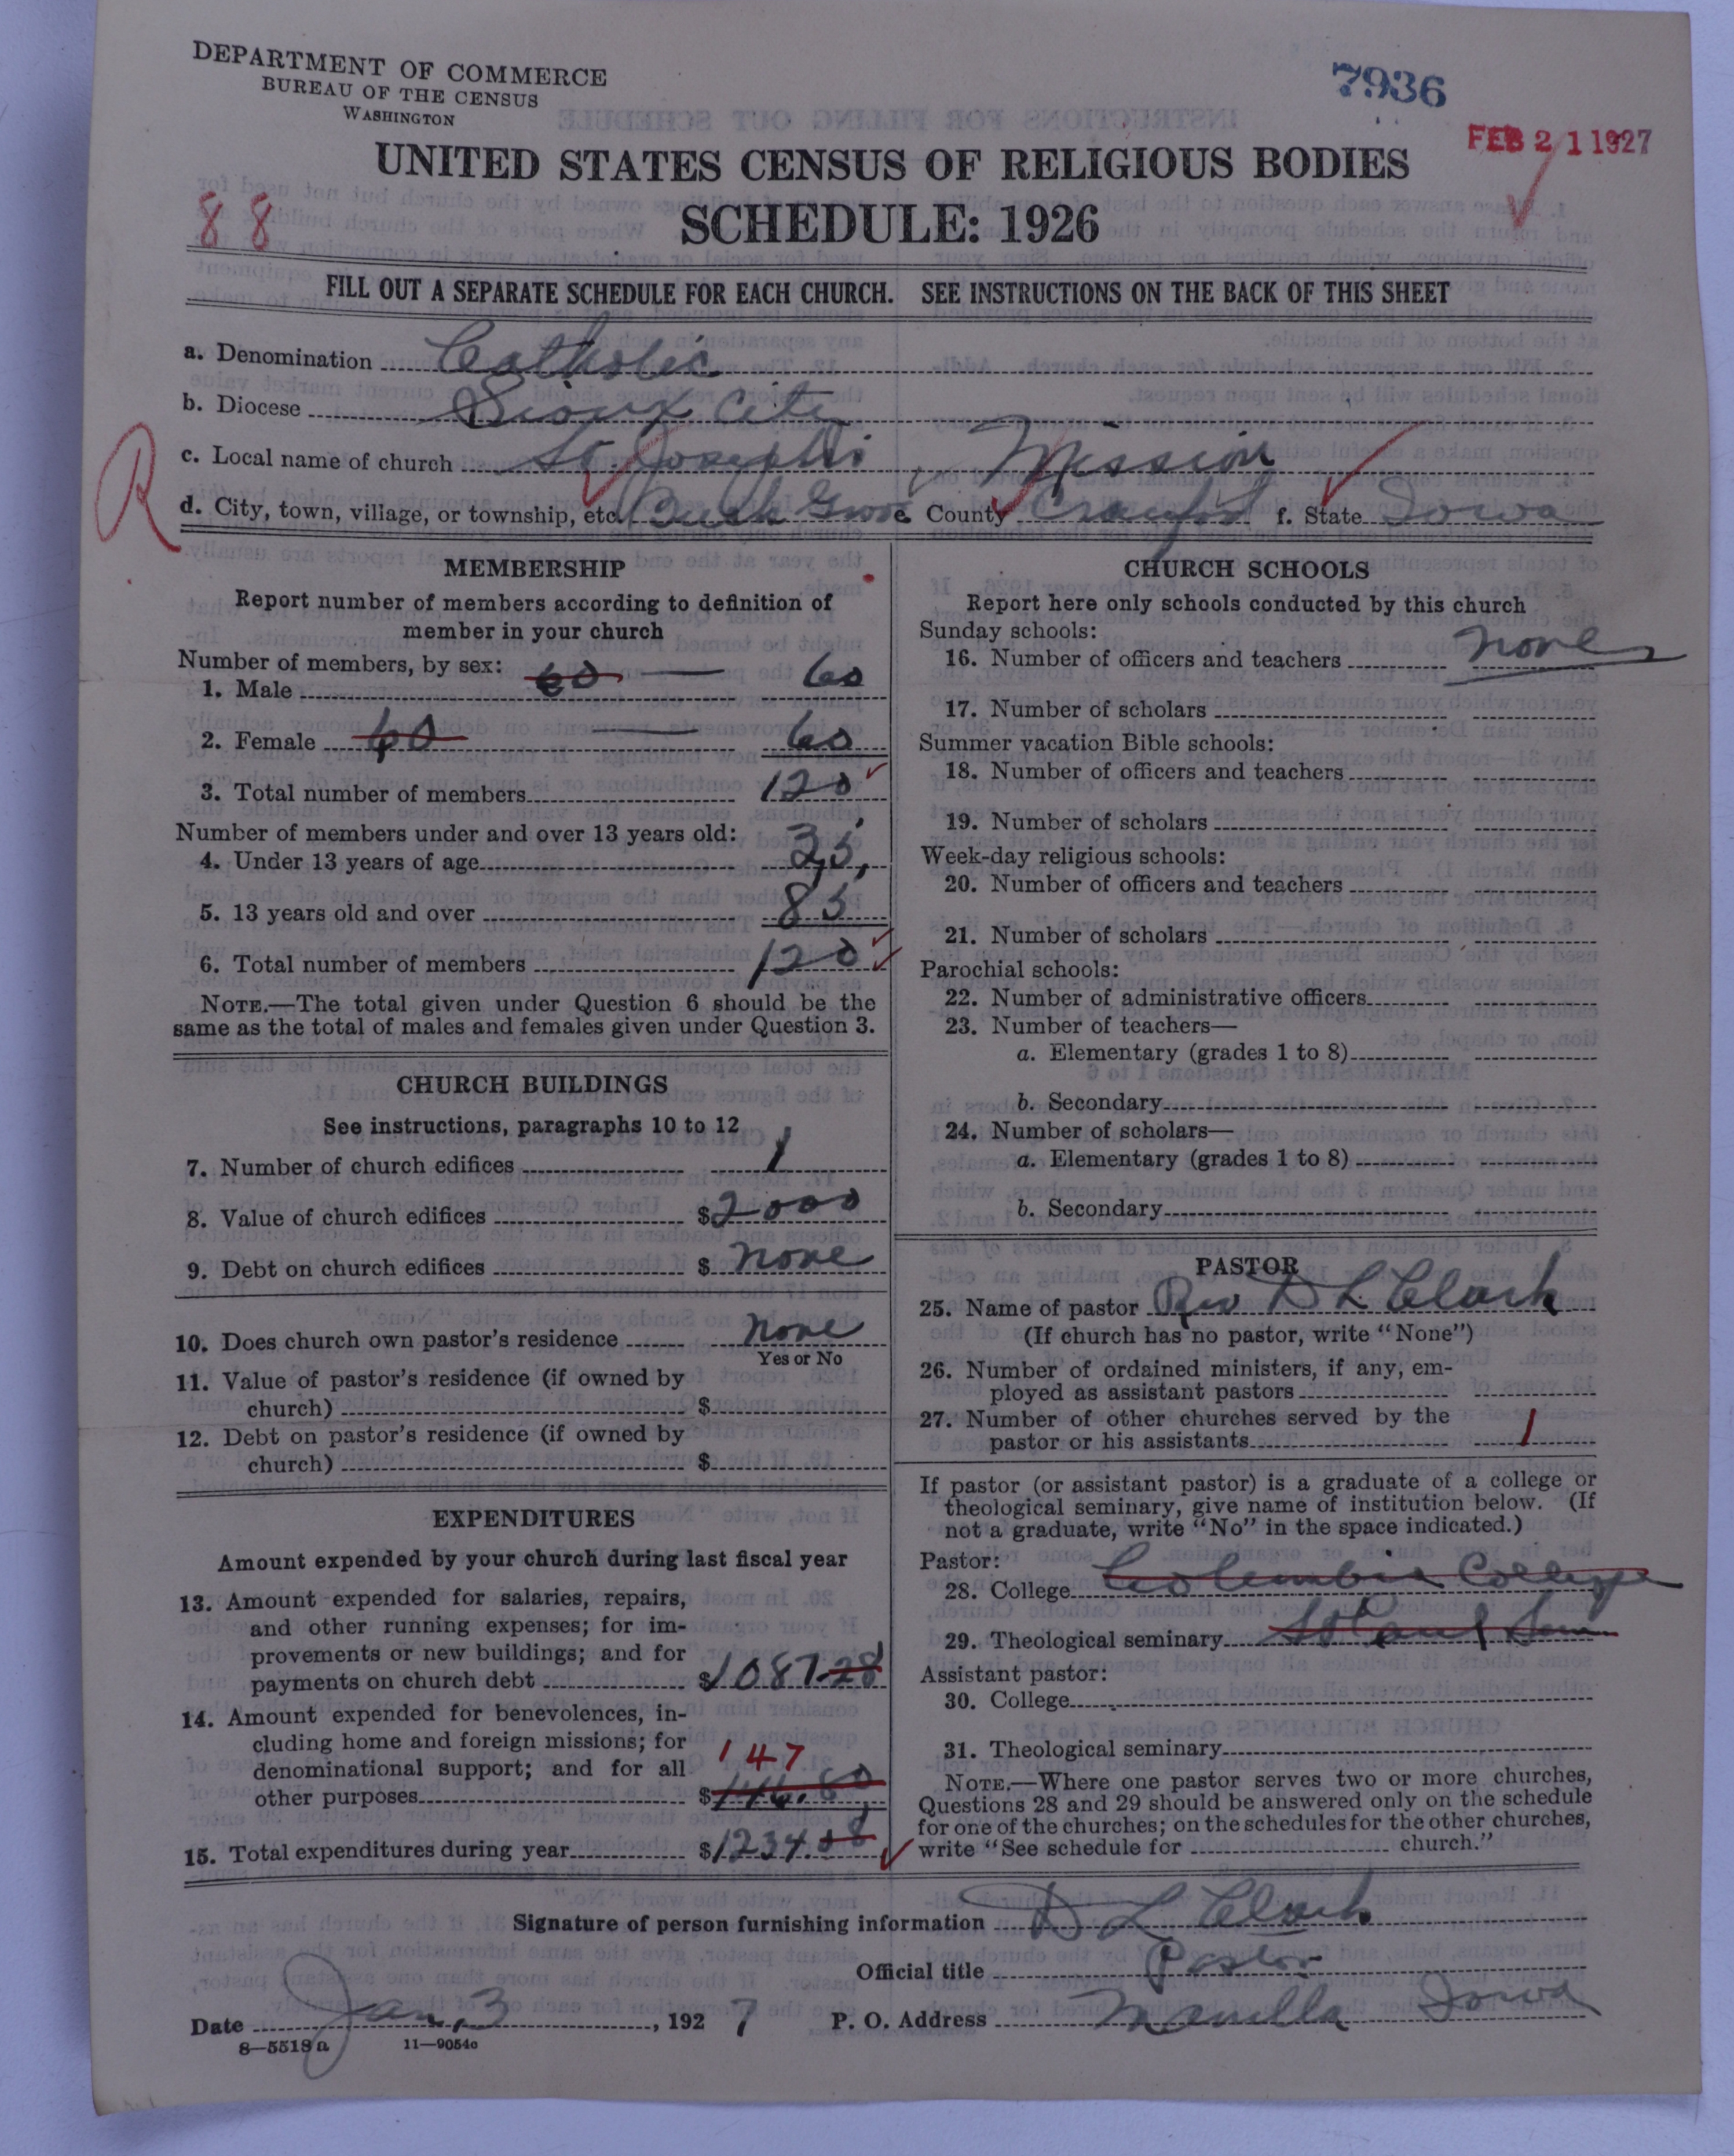 DEPARTMENT OF COMMERCE
BUREAU OF THE CENSUS
WASHINGTON
7936
FEB 21 1927
UNITED STATES CENSUS OF RELIGIOUS BODIES
88
SCHEDULE: 1926
FILL OUT A SEPARATE SCHEDULE FOR EACH CHURCH. SEE INSTRUCTIONS ON THE BACK OF THIS SHEET
a. Denomination Catholic
b. Diocese Sioux City
R
c. Local name of church St. Joseph's Mission
d. City, town, village, or township, etc. Grove e. County Crawford f. State Iowa
MEMBERSHIP
Report number of members according to definition of
member in your church
Number of members, by sex:
1. Male 60 — 60
2. Female 60 — 60
3. Total number of members 120
Number of members under and over 13 years old:
4. Under 13 years of age 35
5. 13 years old and over 85
6. Total number of members 120
NOTE.—The total given under Question 6 should be the
same as the total of males and females given under Question 3.
CHURCH BUILDINGS
See instructions, paragraphs 10 to 12
7. Number of church edifices 1
8. Value of church edifices $2000
9. Debt on church edifices $ none
10. Does church own pastor's residence none
Yes or No
11. Value of pastor's residence (if owned by
church) $
12. Debt on pastor's residence (if owned by
church) $
EXPENDITURES
Amount expended by your church during last fiscal year
13. Amount expended for salaries, repairs,
and other running expenses; for im-
provements or new buildings; and for
payments on church debt $1087.28
14. Amount expended for benevolences, in-
cluding home and foreign missions; for
denominational support; and for all 147
other purposes $146.80
15. Total expenditures during year $1234.08
CHURCH SCHOOLS
Report here only schools conducted by this church
Sunday schools:
16. Number of officers and teachers none
17. Number of scholars
Summer vacation Bible schools:
18. Number of officers and teachers
19. Number of scholars
Week-day religious schools:
20. Number of officers and teachers
21. Number of scholars
Parochial schools:
22. Number of administrative officers
23. Number of teachers—
a. Elementary (grades 1 to 8)
b. Secondary
24. Number of scholars—
a. Elementary (grades 1 to 8)
b. Secondary
PASTOR
25. Name of pastor Rev D L Clark
(If church has no pastor, write "None")
26. Number of ordained ministers, if any, em-
ployed as assistant pastors
27. Number of other churches served by the
pastor or his assistants 1
If pastor (or assistant pastor) is a graduate of a college or
theological seminary, give name of institution below. (If
not a graduate, write "No" in the space indicated.)
Pastor:
28. College Columbia College
29. Theological seminary St Paul Sem
Assistant pastor:
30. College
31. Theological seminary
NOTE.—Where one pastor serves two or more churches,
Questions 28 and 29 should be answered only on the schedule
for one of the churches; on the schedules for the other churches,
write "See schedule for church."
Signature of person furnishing information D L Clark
Official title Pastor
Date Jan. 3, 1927 P. O. Address Manilla Iowa
8—5518a 11—9054c